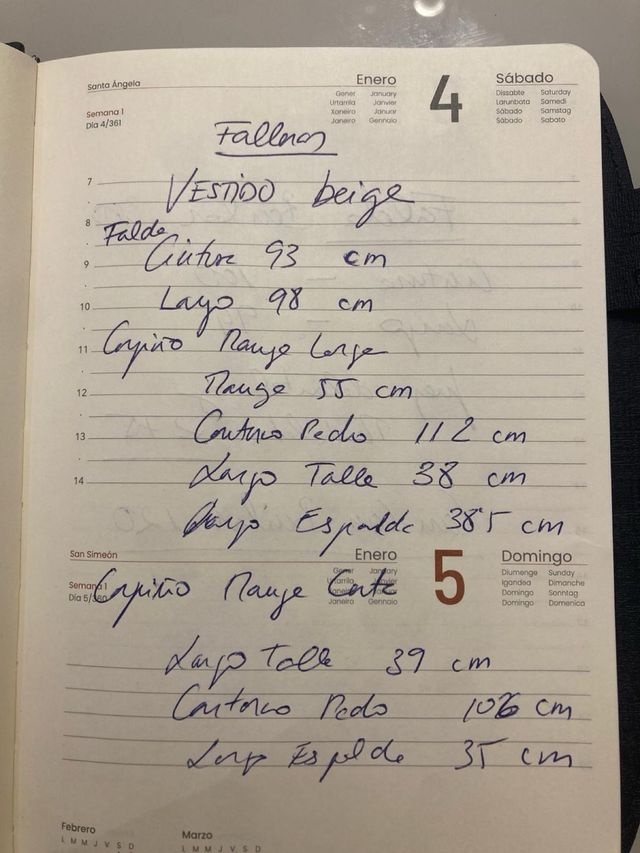 Santa Ángela
Enero
4
Sábado
Semana 1
Día 4/361
Gener January
Urtarrila Janvier
Xaneiro Januar
Janeiro Gennaio
Dissabte Saturday
Larunbata Samedi
Sábado Samstag
Sábado Sabato
Falleras
7 VESTIDO beige
8
Falda
9 Cintura 93 cm
10 Largo 98 cm
11 Corpiño Manga Larga
12 Manga 55 cm
13 Contorno Pecho 112 cm
14 Largo Talle 38 cm
Largo Espalda 38'5 cm
San Simeón
Enero
5
Domingo
Semana 1
Día 5/360
Gener January
Janeiro Gennaio
Diumenge Sunday
Igandea Dimanche
Domingo Sonntag
Domingo Domenica
Corpiño Manga Corta
Largo Talle 39 cm
Contorno Pecho 106 cm
Largo Espalda 35 cm
Febrero
L M M J V S D
Marzo
L M M J V S D